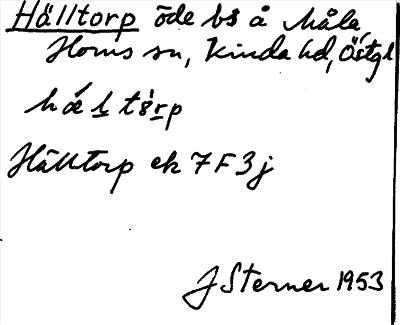 Hälltorp öde bs å Måla,
Horns sn, Kinda hd, Östgl
Hälltorp ek 7F3j
J Sterner 1953